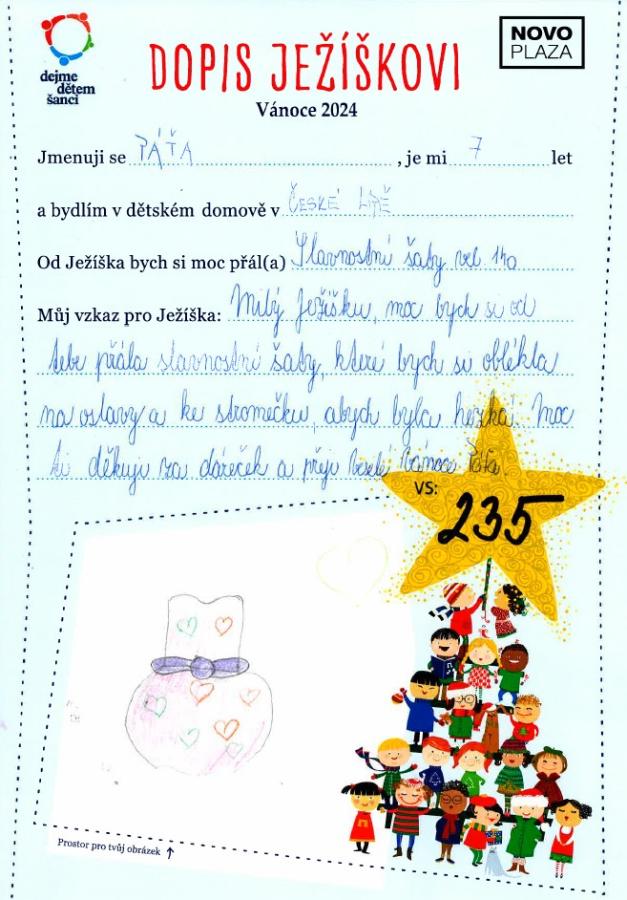 dejme
dětem
šanci
DOPIS JEŽÍŠKOVI
NOVO
PLAZA
Vánoce 2024
Jmenuji se PÁŤA, je mi 7 let
a bydlím v dětském domově v ČESKÉ LÍPĚ
Od Ježíška bych si moc přál(a) Slavnostní šaby vel 140
Můj vzkaz pro Ježíška: Milý Ježíšku, moc bych si od
tebe přála slavnostní šaby, které bych si oblékla
na oslavy a ke stromečku, abych byla hezká. Moc
ti děkuji za dáreček a přeji veselé Vánoce Páťa.
VS:
235
Prostor pro tvůj obrázek ↑